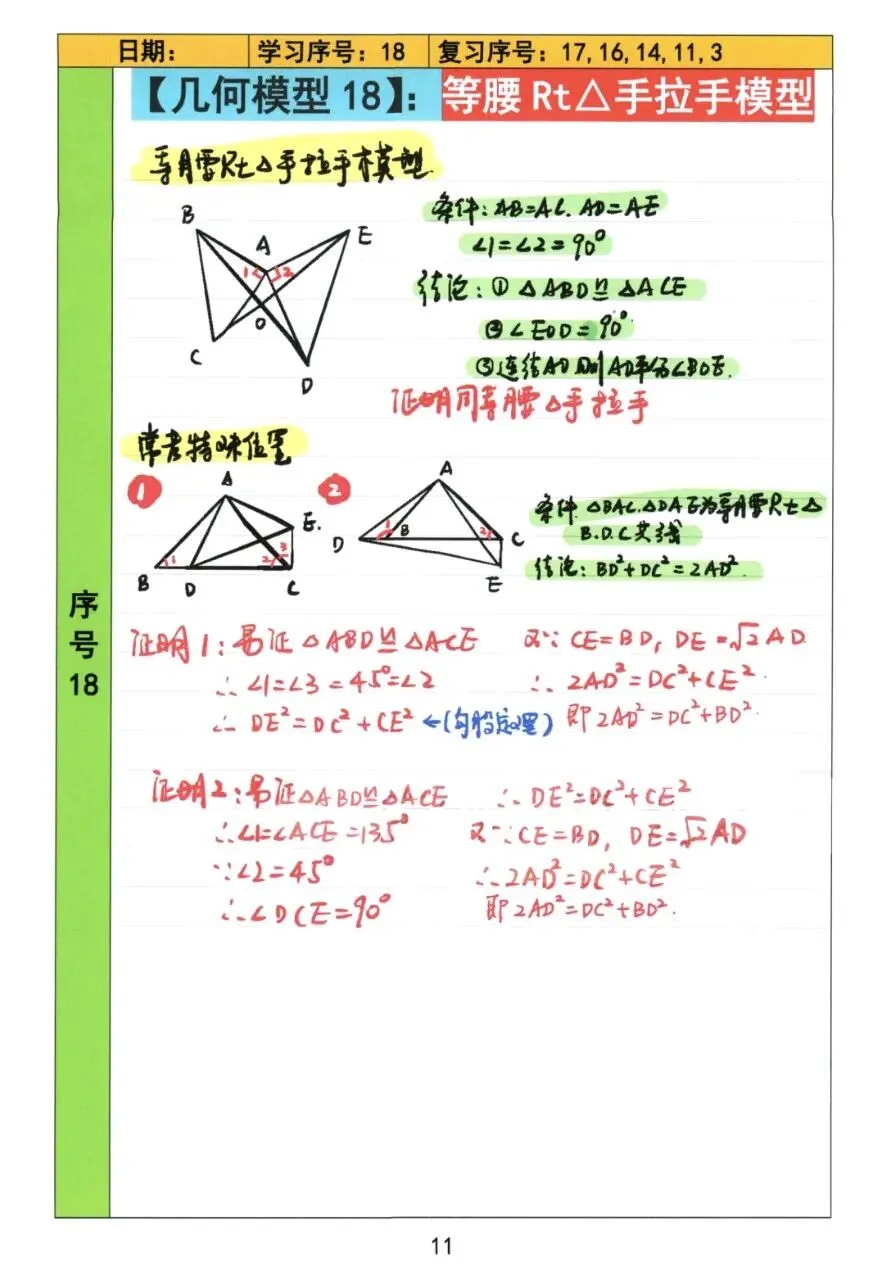 日期： 学习序号：18 复习序号：17,16,14,11,3
【几何模型 18】：等腰 Rt△手拉手模型
等腰Rt△手拉手模型.
B
A
E
1
2
O
C
D
条件：AB=AC. AD=AE
∠1=∠2=90°
结论：① △ABD≌△ACE
②∠EOD=90°.
③连结AO则AO平分∠BOE.
证明同等腰△手拉手
常考特殊位置
1
A
E.
B
D
C
1
2
3
2
A
D
B
C
E
1
2
条件.△BAC.△DAE为等腰Rt△
B.D.C共线
结论：BD²+DC²=2AD².
序号18
证明1：易证△ABD≌△ACE
∴∠1=∠3=45°=∠2
∴ DE²=DC²+CE² ←(勾股定理)
又∵CE=BD, DE=√2AD.
∴ 2AD²=DC²+CE².
即2AD²=DC²+BD².
证明2：易证△ABD≌△ACE
∴∠1=∠ACE=135°
∵∠2=45°
∴∠DCE=90°
∴DE²=DC²+CE²
又∵CE=BD, DE=√2AD
∴2AD²=DC²+CE²
即2AD²=DC²+BD².
11